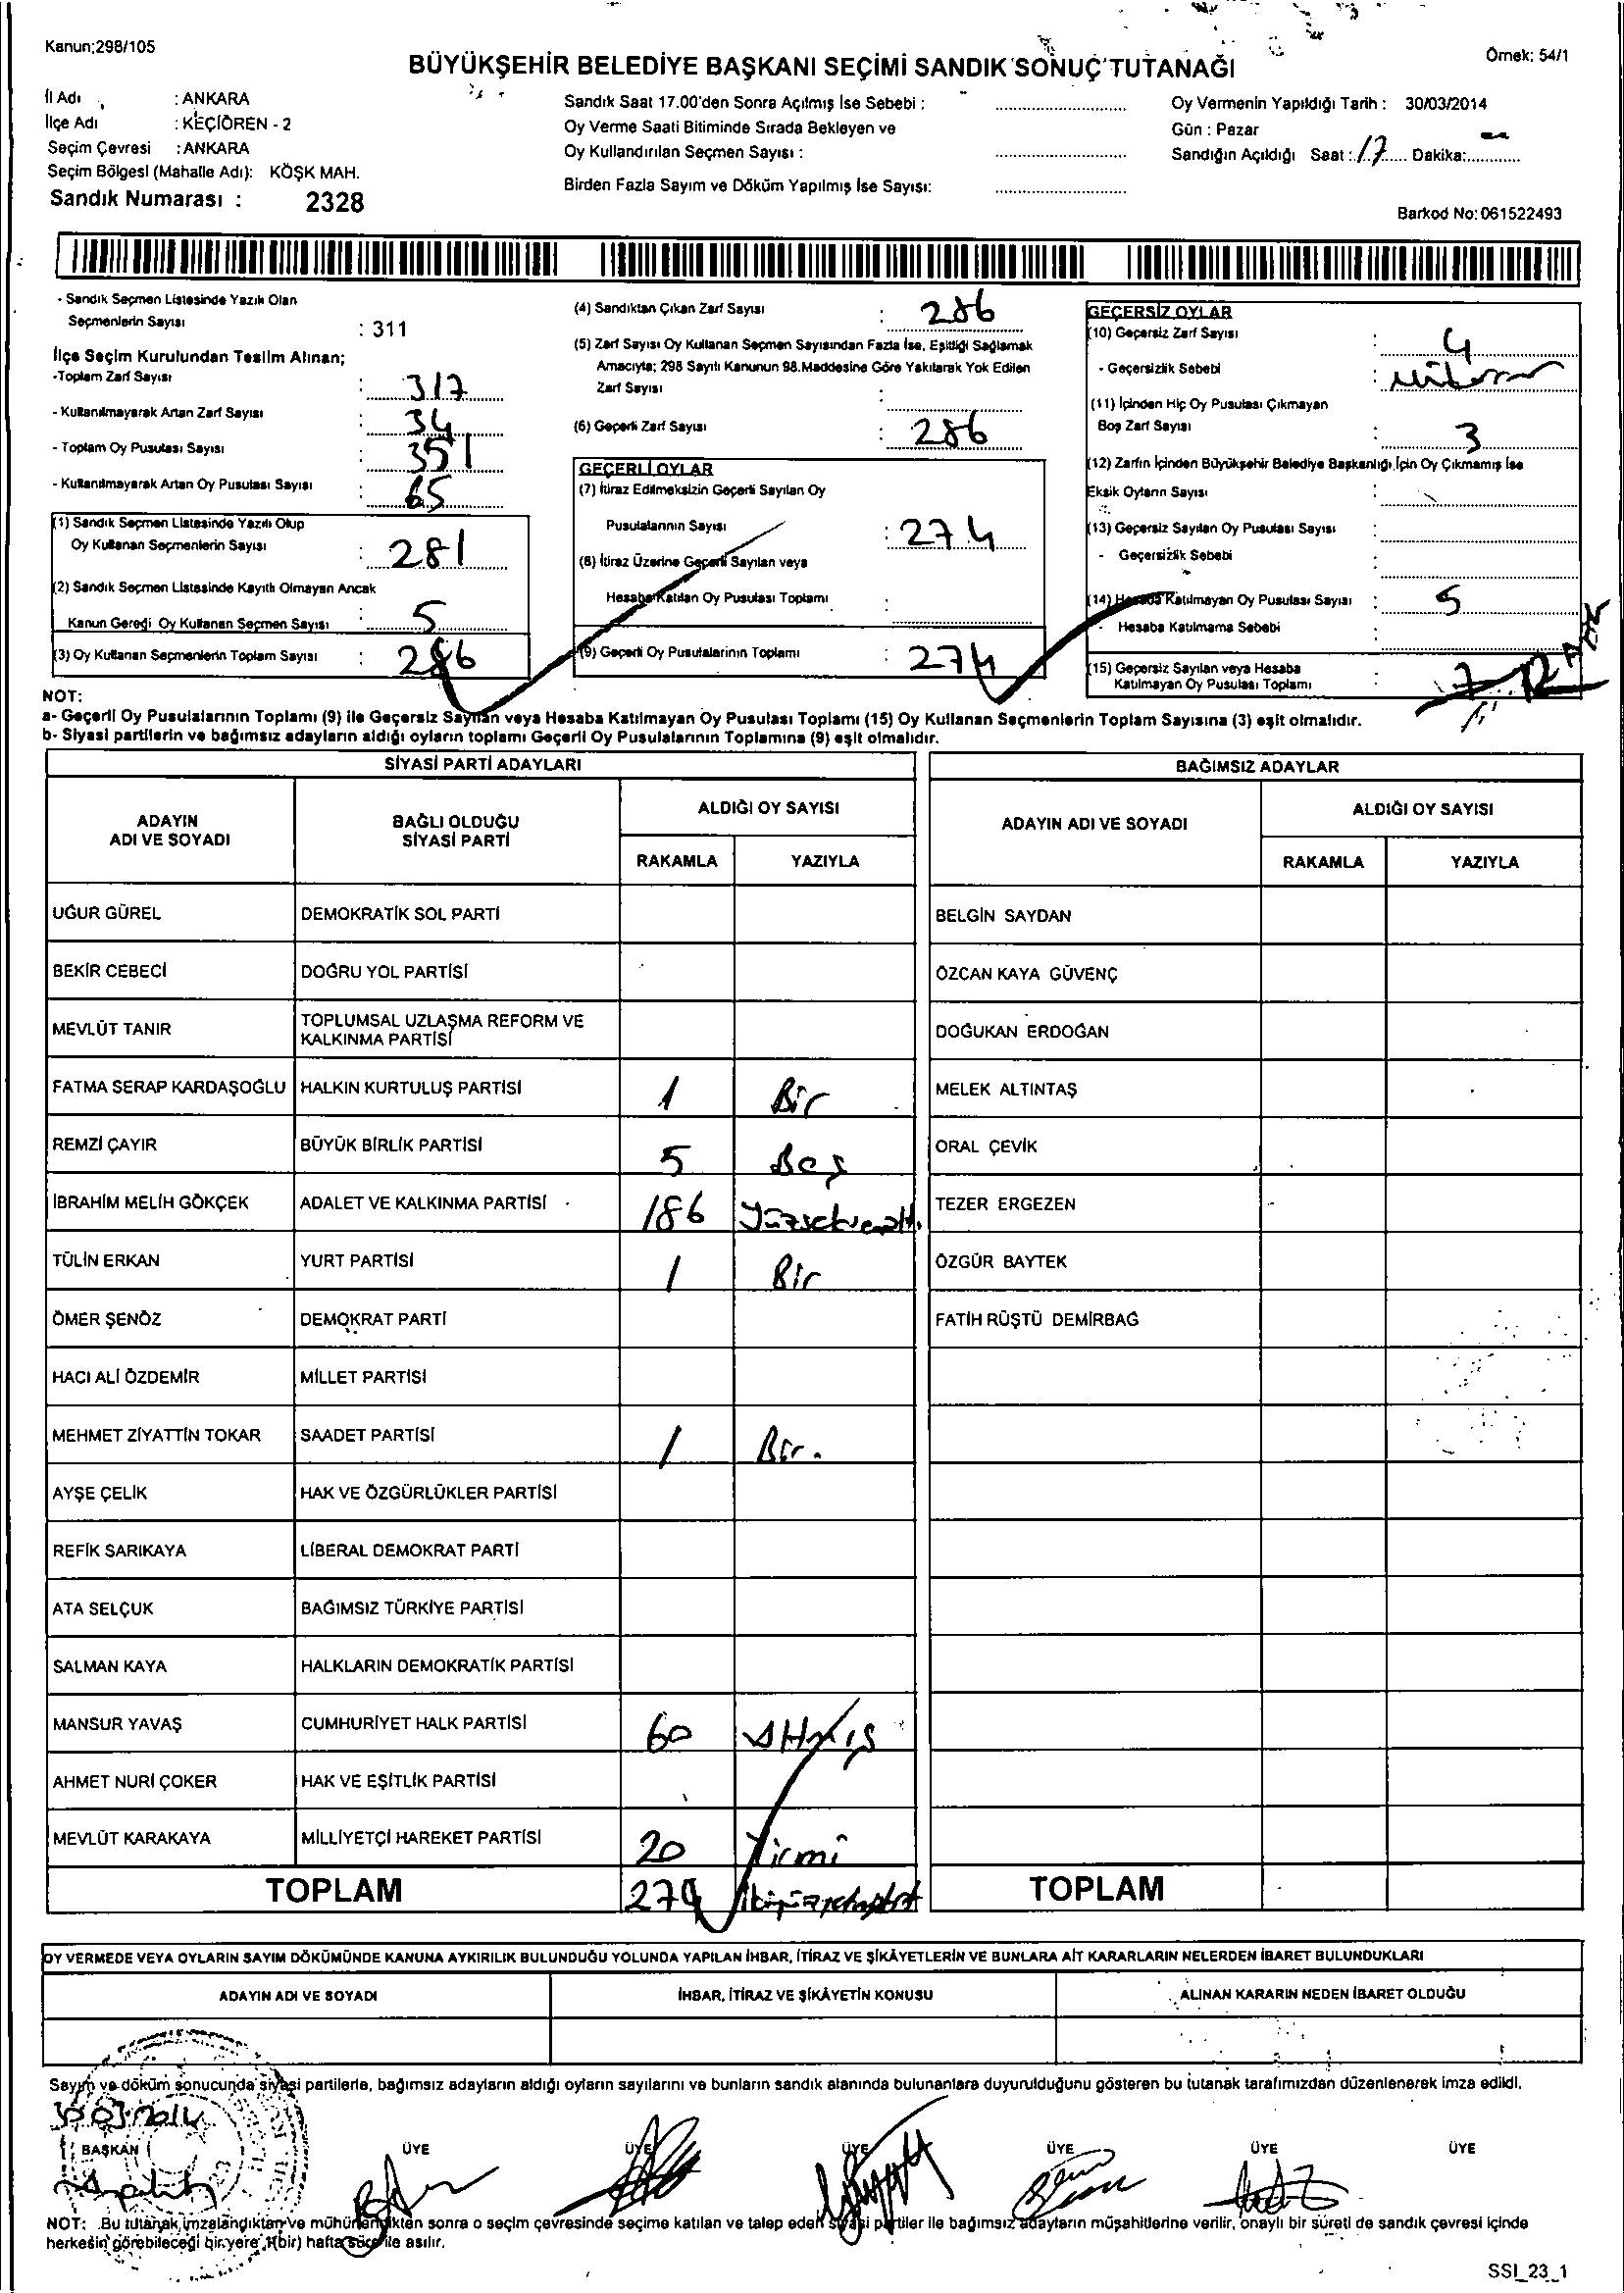 Kanun;298/105
BÜYÜKŞEHİR BELEDİYE BAŞKANI SEÇİMİ SANDIK SONUÇ TUTANAĞI
Örnek: 54/1
İl Adı : ANKARA
İlçe Adı : KEÇİÖREN - 2
Seçim Çevresi : ANKARA
Seçim Bölgesi (Mahalle Adı): KÖŞK MAH.
Sandık Numarası : 2328
Sandık Saat 17.00'den Sonra Açılmış İse Sebebi :
Oy Verme Saati Bitiminde Sırada Bekleyen ve
Oy Kullandırılan Seçmen Sayısı :
Birden Fazla Sayım ve Döküm Yapılmış İse Sayısı:
Oy Vermenin Yapıldığı Tarih : 30/03/2014
Gün : Pazar
Sandığın Açıldığı Saat : 17 Dakika: -
Barkod No: 061522493
- Sandık Seçmen Listesinde Yazılı Olan
Seçmenlerin Sayısı : 311
İlçe Seçim Kurulundan Teslim Alınan;
-Toplam Zarf Sayısı : 317
- Kullanılmayarak Artan Zarf Sayısı : 34
- Toplam Oy Pusulası Sayısı : 351
- Kullanılmayarak Artan Oy Pusulası Sayısı : 65
(1) Sandık Seçmen Listesinde Yazılı Olup
Oy Kullanan Seçmenlerin Sayısı : 281
(2) Sandık Seçmen Listesinde Kayıtlı Olmayan Ancak
Kanun Gereği Oy Kullanan Seçmen Sayısı : 5
(3) Oy Kullanan Seçmenlerin Toplam Sayısı : 286
(4) Sandıktan Çıkan Zarf Sayısı : 286
(5) Zarf Sayısı Oy Kullanan Seçmen Sayısından Fazla İse, Eşitliği Sağlamak
Amacıyla; 298 Sayılı Kanunun 98.Maddesine Göre Yakılarak Yok Edilen
Zarf Sayısı :
(6) Geçerli Zarf Sayısı : 286
GEÇERLİ OYLAR
(7) İtiraz Edilmeksizin Geçerli Sayılan Oy
Pusulalarının Sayısı : 274
(8) İtiraz Üzerine Geçerli Sayılan veya
Hesaba Katılan Oy Pusulası Toplamı :
(9) Geçerli Oy Pusulalarının Toplamı : 274
GEÇERSİZ OYLAR
(10) Geçersiz Zarf Sayısı : 4
- Geçersizlik Sebebi :
(11) İçinden Hiç Oy Pusulası Çıkmayan
Boş Zarf Sayısı : 3
(12) Zarfın İçinden Büyükşehir Belediye Başkanlığı İçin Oy Çıkmamış İse
Eksik Oyların Sayısı :
(13) Geçersiz Sayılan Oy Pusulası Sayısı :
- Geçersizlik Sebebi
(14) Hesaba Katılmayan Oy Pusulası Sayısı : 5
- Hesaba Katılmama Sebebi :
(15) Geçersiz Sayılan veya Hesaba
Katılmayan Oy Pusulası Toplamı : 12
NOT:
a- Geçerli Oy Pusulalarının Toplamı (9) ile Geçersiz Sayılan veya Hesaba Katılmayan Oy Pusulası Toplamı (15) Oy Kullanan Seçmenlerin Toplam Sayısına (3) eşit olmalıdır.
b- Siyasi partilerin ve bağımsız adayların aldığı oyların toplamı Geçerli Oy Pusulalarının Toplamına (9) eşit olmalıdır.
SİYASİ PARTİ ADAYLARI
ADAYIN ADI VE SOYADI BAĞLI OLDUĞU SİYASİ PARTİ ALDIĞI OY SAYISI
RAKAMLA YAZIYLA
UĞUR GÜREL DEMOKRATİK SOL PARTİ
BEKİR CEBECİ DOĞRU YOL PARTİSİ
MEVLÜT TANIR TOPLUMSAL UZLAŞMA REFORM VE KALKINMA PARTİSİ
FATMA SERAP KARDAŞOĞLU HALKIN KURTULUŞ PARTİSİ 1 Bir
REMZİ ÇAYIR BÜYÜK BİRLİK PARTİSİ 5 Beş
İBRAHİM MELİH GÖKÇEK ADALET VE KALKINMA PARTİSİ 186 Yüzseksenaltı
TÜLİN ERKAN YURT PARTİSİ 1 Bir
ÖMER ŞENÖZ DEMOKRAT PARTİ
HACI ALİ ÖZDEMİR MİLLET PARTİSİ
MEHMET ZİYATTİN TOKAR SAADET PARTİSİ 1 Bir.
AYŞE ÇELİK HAK VE ÖZGÜRLÜKLER PARTİSİ
REFİK SARIKAYA LİBERAL DEMOKRAT PARTİ
ATA SELÇUK BAĞIMSIZ TÜRKİYE PARTİSİ
SALMAN KAYA HALKLARIN DEMOKRATİK PARTİSİ
MANSUR YAVAŞ CUMHURİYET HALK PARTİSİ 60 Altmış
AHMET NURİ ÇOKER HAK VE EŞİTLİK PARTİSİ
MEVLÜT KARAKAYA MİLLİYETÇİ HAREKET PARTİSİ 20 Yirmi
TOPLAM 274 ikiyüzyetmişdört
BAĞIMSIZ ADAYLAR
ADAYIN ADI VE SOYADI ALDIĞI OY SAYISI
RAKAMLA YAZIYLA
BELGİN SAYDAN
ÖZCAN KAYA GÜVENÇ
DOĞUKAN ERDOĞAN
MELEK ALTINTAŞ
ORAL ÇEVİK
TEZER ERGEZEN
ÖZGÜR BAYTEK
FATİH RÜŞTÜ DEMİRBAĞ
TOPLAM
OY VERMEDE VEYA OYLARIN SAYIM DÖKÜMÜNDE KANUNA AYKIRILIK BULUNDUĞU YOLUNDA YAPILAN İHBAR, İTİRAZ VE ŞİKÂYETLERİN VE BUNLARA AİT KARARLARIN NELERDEN İBARET BULUNDUKLARI
ADAYIN ADI VE SOYADI İHBAR, İTİRAZ VE ŞİKÂYETİN KONUSU ALINAN KARARIN NEDEN İBARET OLDUĞU
Sayım ve döküm sonucunda siyasi partilerle, bağımsız adayların aldığı oyların sayılarını ve bunların sandık alanında bulunanlara duyurulduğunu gösteren bu tutanak tarafımızdan düzenlenerek imza edildi.
30.03.2014
BAŞKAN ÜYE ÜYE ÜYE ÜYE ÜYE ÜYE
NOT: Bu tutanak, imzalandıktan ve mühürlendikten sonra o seçim çevresinde seçime katılan ve talep eden siyasi partiler ile bağımsız adayların müşahitlerine verilir, onaylı bir sureti de sandık çevresi içinde
herkesin görebileceği bir yere 1(bir) hafta süre ile asılır.
SSI_23_1